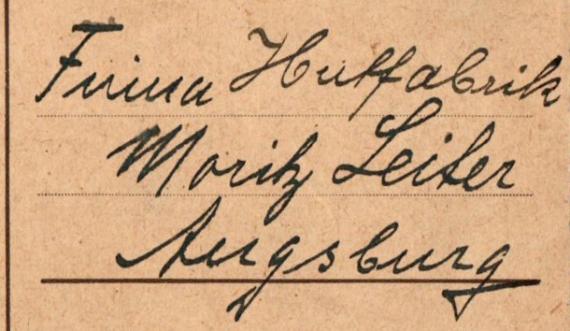 Firma Hutfabrik
Moritz Leiter
Augsburg